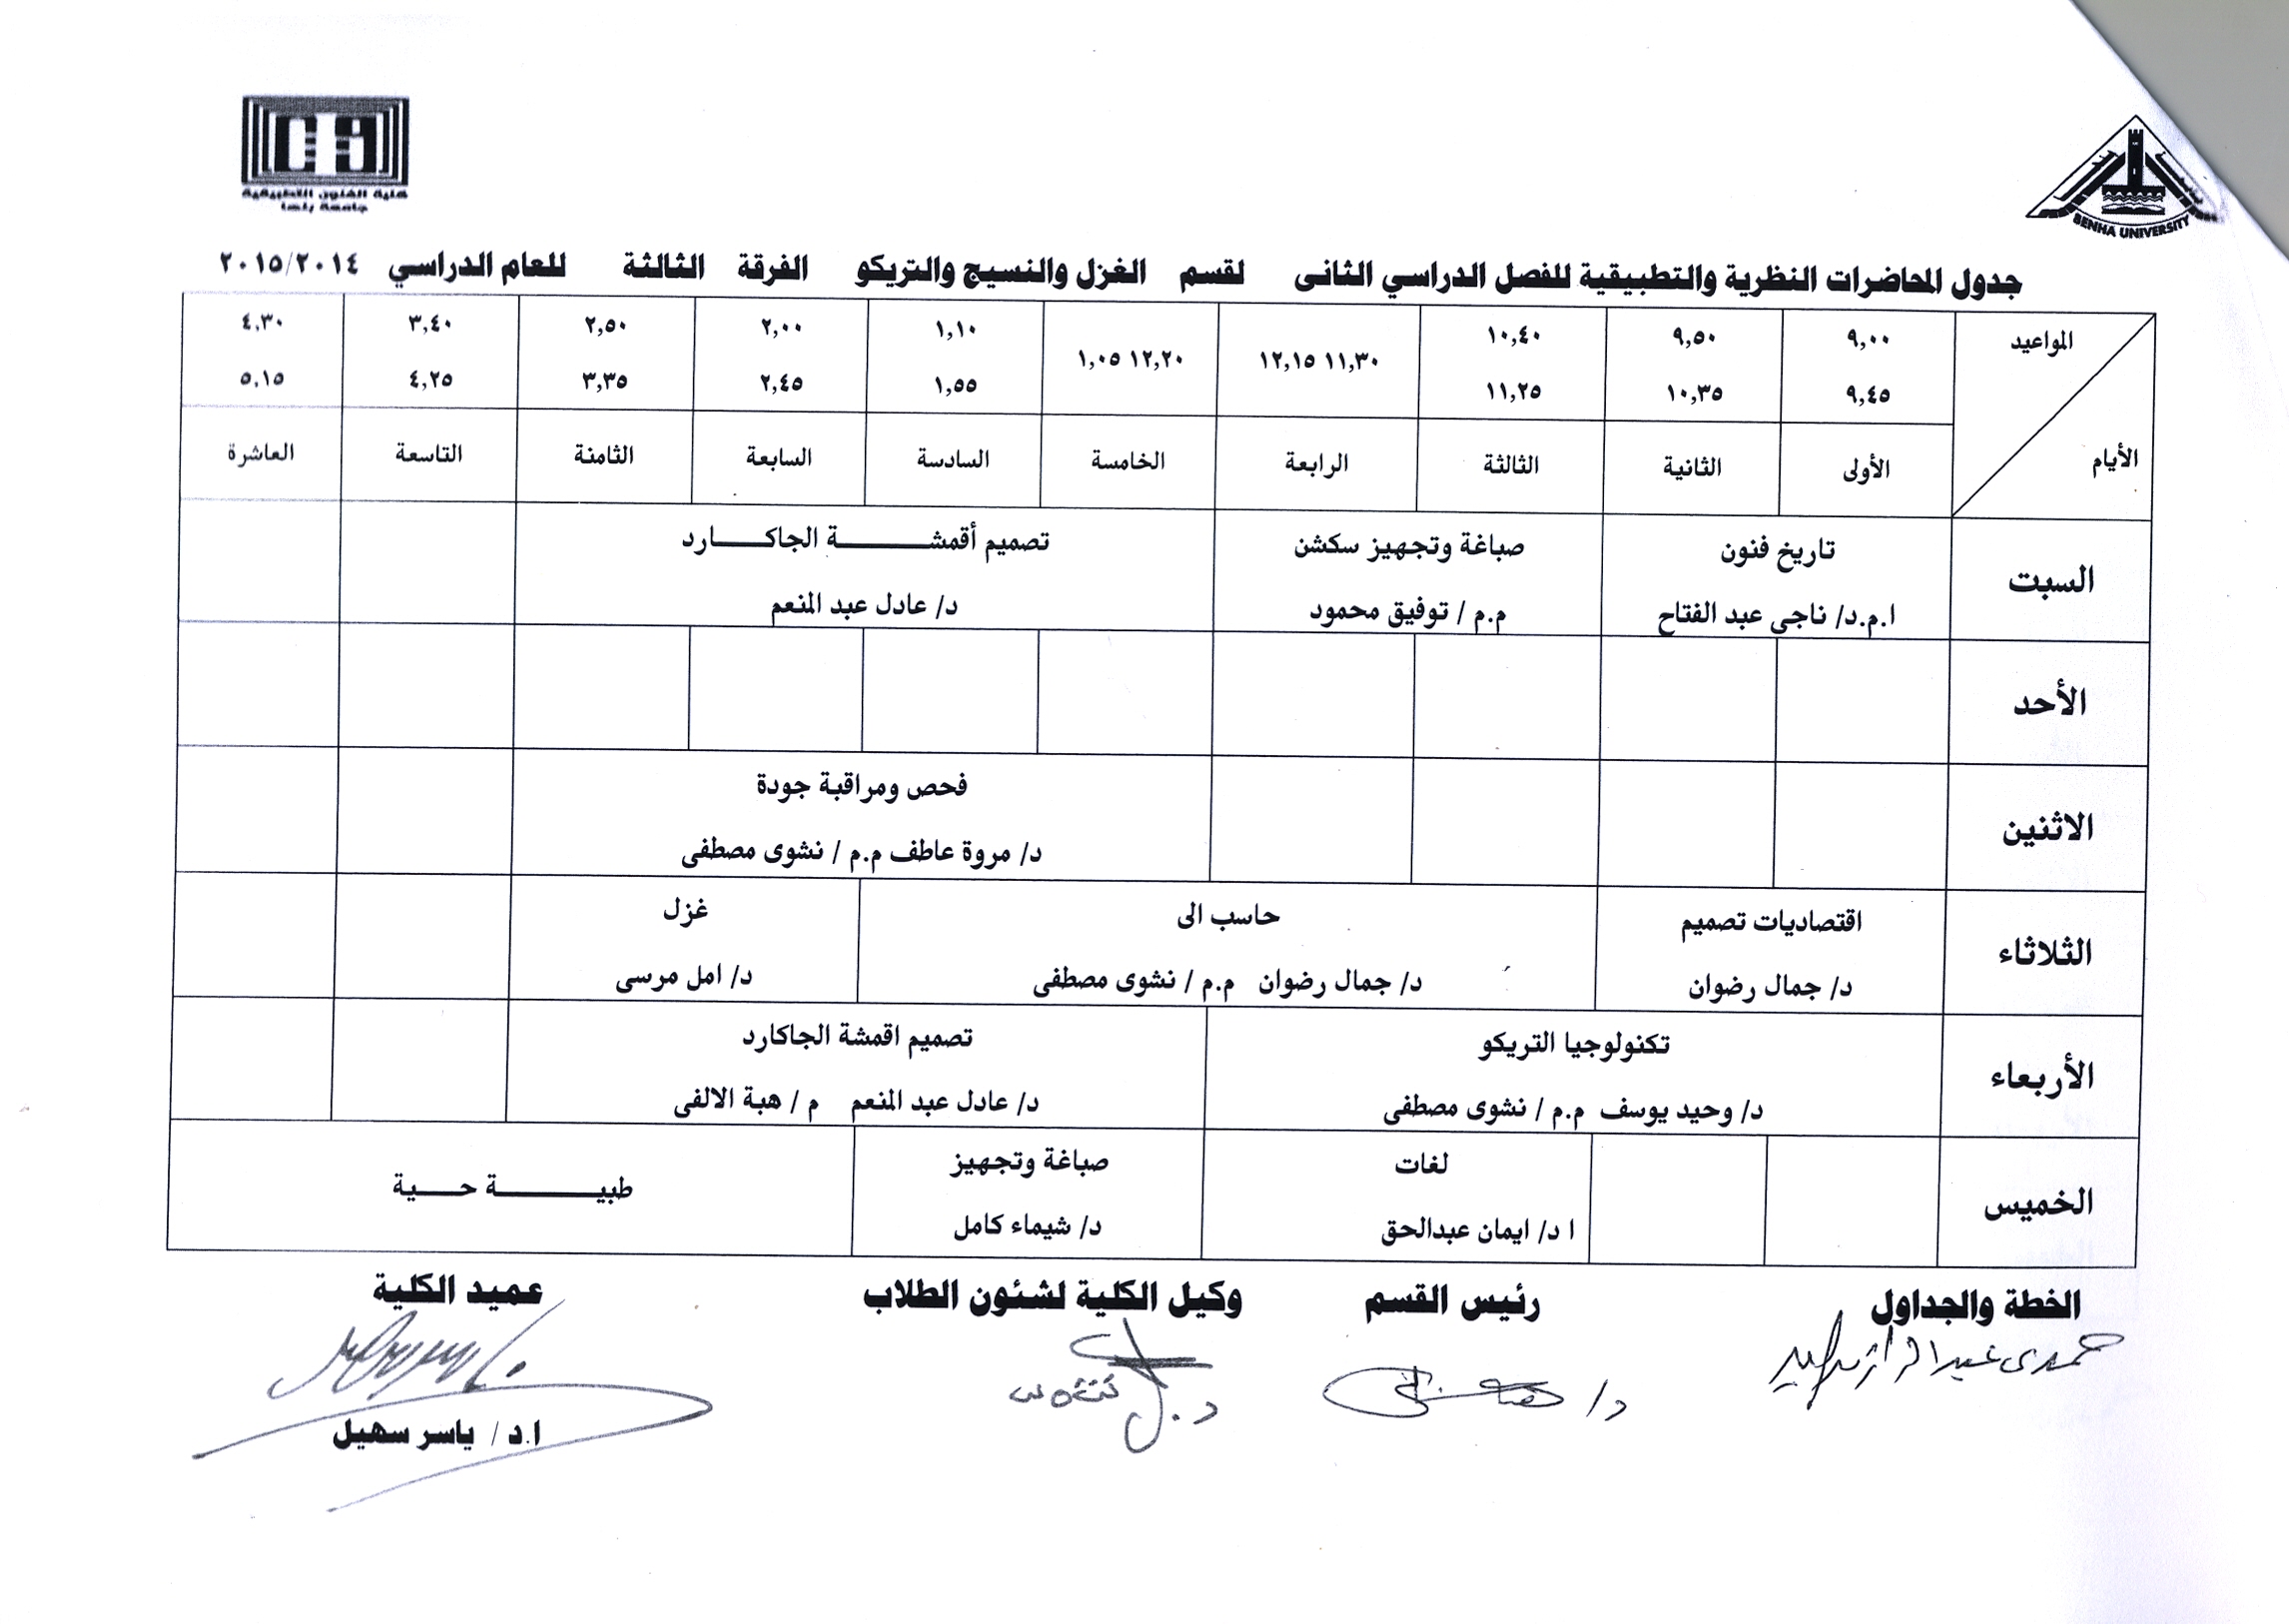 كلية الفنون التطبيقية
جامعة بنها
BENHA UNIVERSITY
جدول المحاضرات النظرية والتطبيقية للفصل الدراسي الثانى لقسم الغزل والنسيج والتريكو الفرقة الثالثة للعام الدراسي ٢٠١٥/٢٠١٤
المواعيد
٩,٠٠ ٩,٥٠ ١٠,٤٠ ١١,٣٠ ١٢,١٥ ١٢,٢٠ ١,٠٥ ١,١٠ ٢,٠٠ ٢,٥٠ ٣,٤٠ ٤,٣٠
٩,٤٥ ١٠,٣٥ ١١,٢٥ ١,٥٥ ٢,٤٥ ٣,٣٥ ٤,٢٥ ٥,١٥
الأيام الأولى الثانية الثالثة الرابعة الخامسة السادسة السابعة الثامنة التاسعة العاشرة
السبت
تاريخ فنون
ا.م.د/ ناجى عبد الفتاح
صباغة وتجهيز سكشن
م.م / توفيق محمود
تصميم أقمشــــــــــة الجاكــــــارد
د/ عادل عبد المنعم
الأحد
الاثنين
فحص ومراقبة جودة
د/ مروة عاطف م.م / نشوى مصطفى
الثلاثاء
اقتصاديات تصميم
د/ جمال رضوان
حاسب الى
د/ جمال رضوان م.م / نشوى مصطفى
غزل
د/ امل مرسى
الأربعاء
تكنولوجيا التريكو
د/ وحيد يوسف م.م / نشوى مصطفى
تصميم اقمشة الجاكارد
د/ عادل عبد المنعم م / هبة الالفى
الخميس
لغات
ا د/ ايمان عبدالحق
صباغة وتجهيز
د/ شيماء كامل
طبيــــــــــــة حـــــية
الخطة والجداول
رئيس القسم
د/
وكيل الكلية لشئون الطلاب
عميد الكلية
ا.د / ياسر سهيل